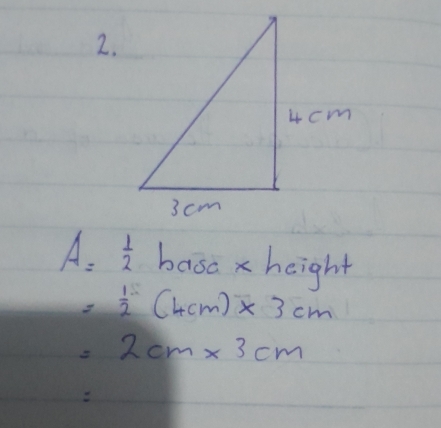 2.
4cm
3cm
A = 1/2 base × height
= 1/2 (4cm) × 3cm
= 2cm × 3cm
=